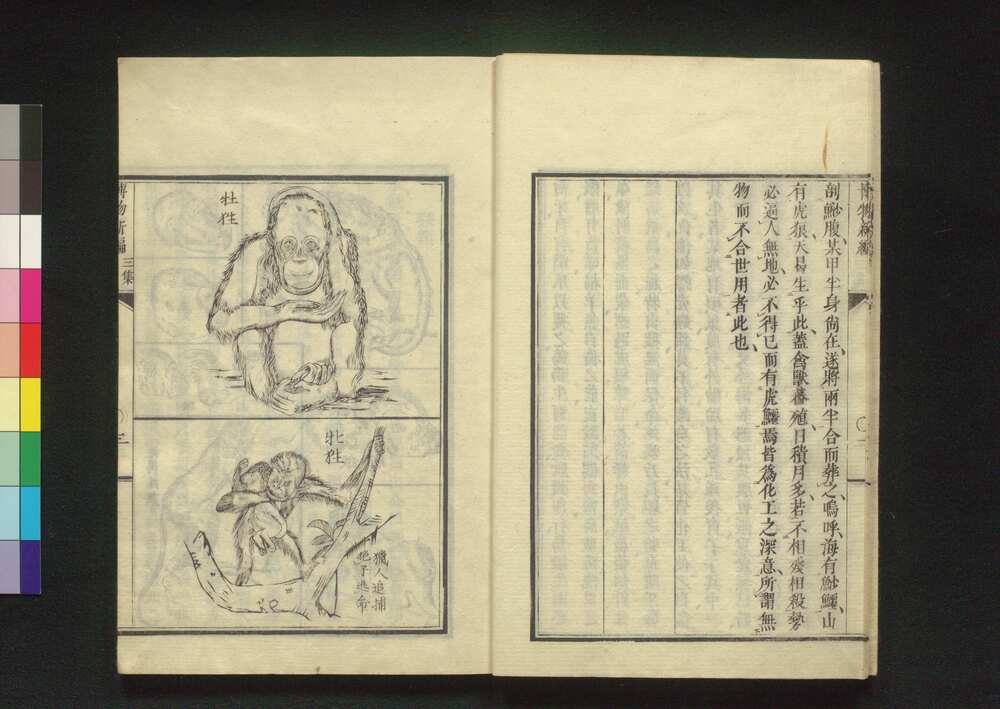 剖鯋腹、某甲半身尙在、遂將兩半合而葬之、嗚呼、海有鯋鱷、山
有虎狼、天曷生乎此、蓋禽獸蕃殖、日積月多、若不相爱相殺、勢
必逼人無地、必不得已而有虎鱷焉、皆爲化工之深意、所謂無
物而不合世用者此也、
博物新編三集
牡狌
牝狌
獵人追捕
抱子逃奔